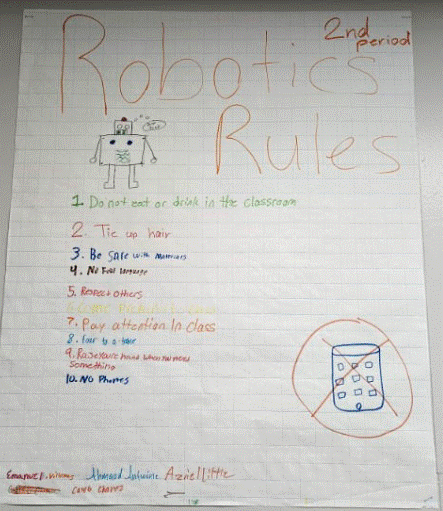 2nd
period
Robotics
Rules
1. Do not eat or drink in the classroom
2. Tie up hair
3. Be Safe with Materials
4. No Foul Language
5. Respect others
7. Pay attention In class
8.
9. Raise your hand when you need
something
10. NO Phones
Emanuel Ahmaad Antwine Azriel Little
Caleb